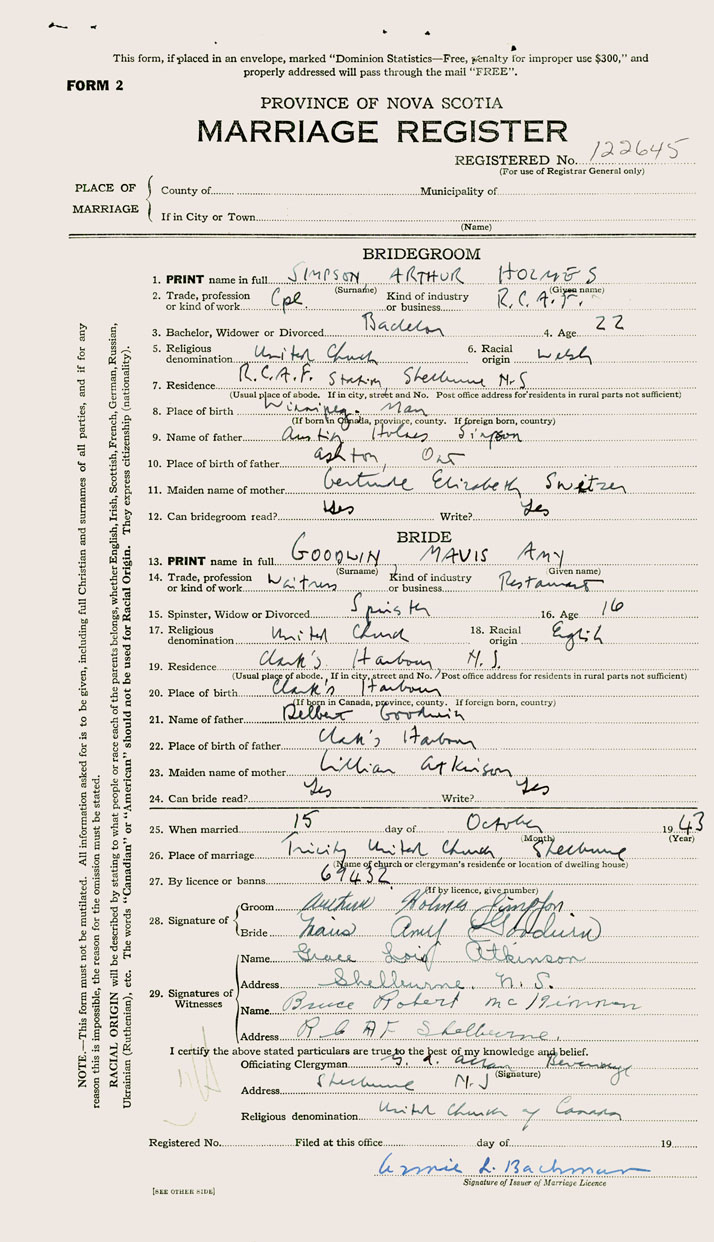 This form, if placed in an envelope, marked "Dominion Statistics—Free, penalty for improper use $300," and
properly addressed will pass through the mail "FREE".
FORM 2
PROVINCE OF NOVA SCOTIA
MARRIAGE REGISTER
REGISTERED No. 122645
(For use of Registrar General only)
PLACE OF MARRIAGE
County of Municipality of
If in City or Town
(Name)
BRIDEGROOM
1. PRINT name in full SIMPSON ARTHUR HOLMES
(Surname) (Given name)
2. Trade, profession or kind of work Cpl. Kind of industry or business R.C.A.F.
3. Bachelor, Widower or Divorced Bachelor 4. Age 22
5. Religious denomination United Church 6. Racial origin Welsh
7. Residence R.C.A.F. Station, Shelburne N.S
(Usual place of abode. If in city, street and No. Post office address for residents in rural parts not sufficient)
8. Place of birth Winnipeg. Man
(If born in Canada, province, county. If foreign born, country)
9. Name of father Austin Holmes Simpson
10. Place of birth of father Ashton, Ont
11. Maiden name of mother Gertrude Elizabeth Switzer
12. Can bridegroom read? Yes Write? Yes
BRIDE
13. PRINT name in full GOODWIN MAVIS AMY
(Surname) (Given name)
14. Trade, profession or kind of work Waitress Kind of industry or business Restaurant
15. Spinster, Widow or Divorced Spinster 16. Age 16
17. Religious denomination United Church 18. Racial origin English
19. Residence Clark's Harbour, N.S.
(Usual place of abode. If in city, street and No. Post office address for residents in rural parts not sufficient)
20. Place of birth Clark's Harbour
(If born in Canada, province, county. If foreign born, country)
21. Name of father Delbert Goodwin
22. Place of birth of father Clark's Harbour
23. Maiden name of mother Lillian Atkinson
24. Can bride read? Yes Write? Yes
25. When married 15 day of October 1943
(Month) (Year)
26. Place of marriage Trinity United Church, Shelburne
(Name of church or clergyman's residence or location of dwelling house)
27. By licence or banns 69432
(If by licence, give number)
28. Signature of
Groom Arthur Holmes Simpson
Bride Mavis Amy Goodwin
29. Signatures of Witnesses
Name Grace Lois Atkinson
Address Shelburne. N.S.
Name Bruce Robert McKinnon
Address R C A F Shelburne.
I certify the above stated particulars are true to the best of my knowledge and belief.
Officiating Clergyman Allan Beveridge
(Signature)
Address Shelburne N.S
Religious denomination United Church of Canada
Registered No. Filed at this office day of 19
Annie L. Bachman
Signature of Issuer of Marriage Licence
[SEE OTHER SIDE]
NOTE.—This form must not be mutilated. All information asked for is to be given, including full Christian and surnames of all parties, and if for any
reason this is impossible, the reason for the omission must be stated.
RACIAL ORIGIN will be described by stating to what people or race each of the parents belongs, whether English, Irish, Scottish, French, German, Russian,
Ukrainian (Ruthenian), etc. The words "Canadian" or "American" should not be used for Racial Origin. They express citizenship (nationality).